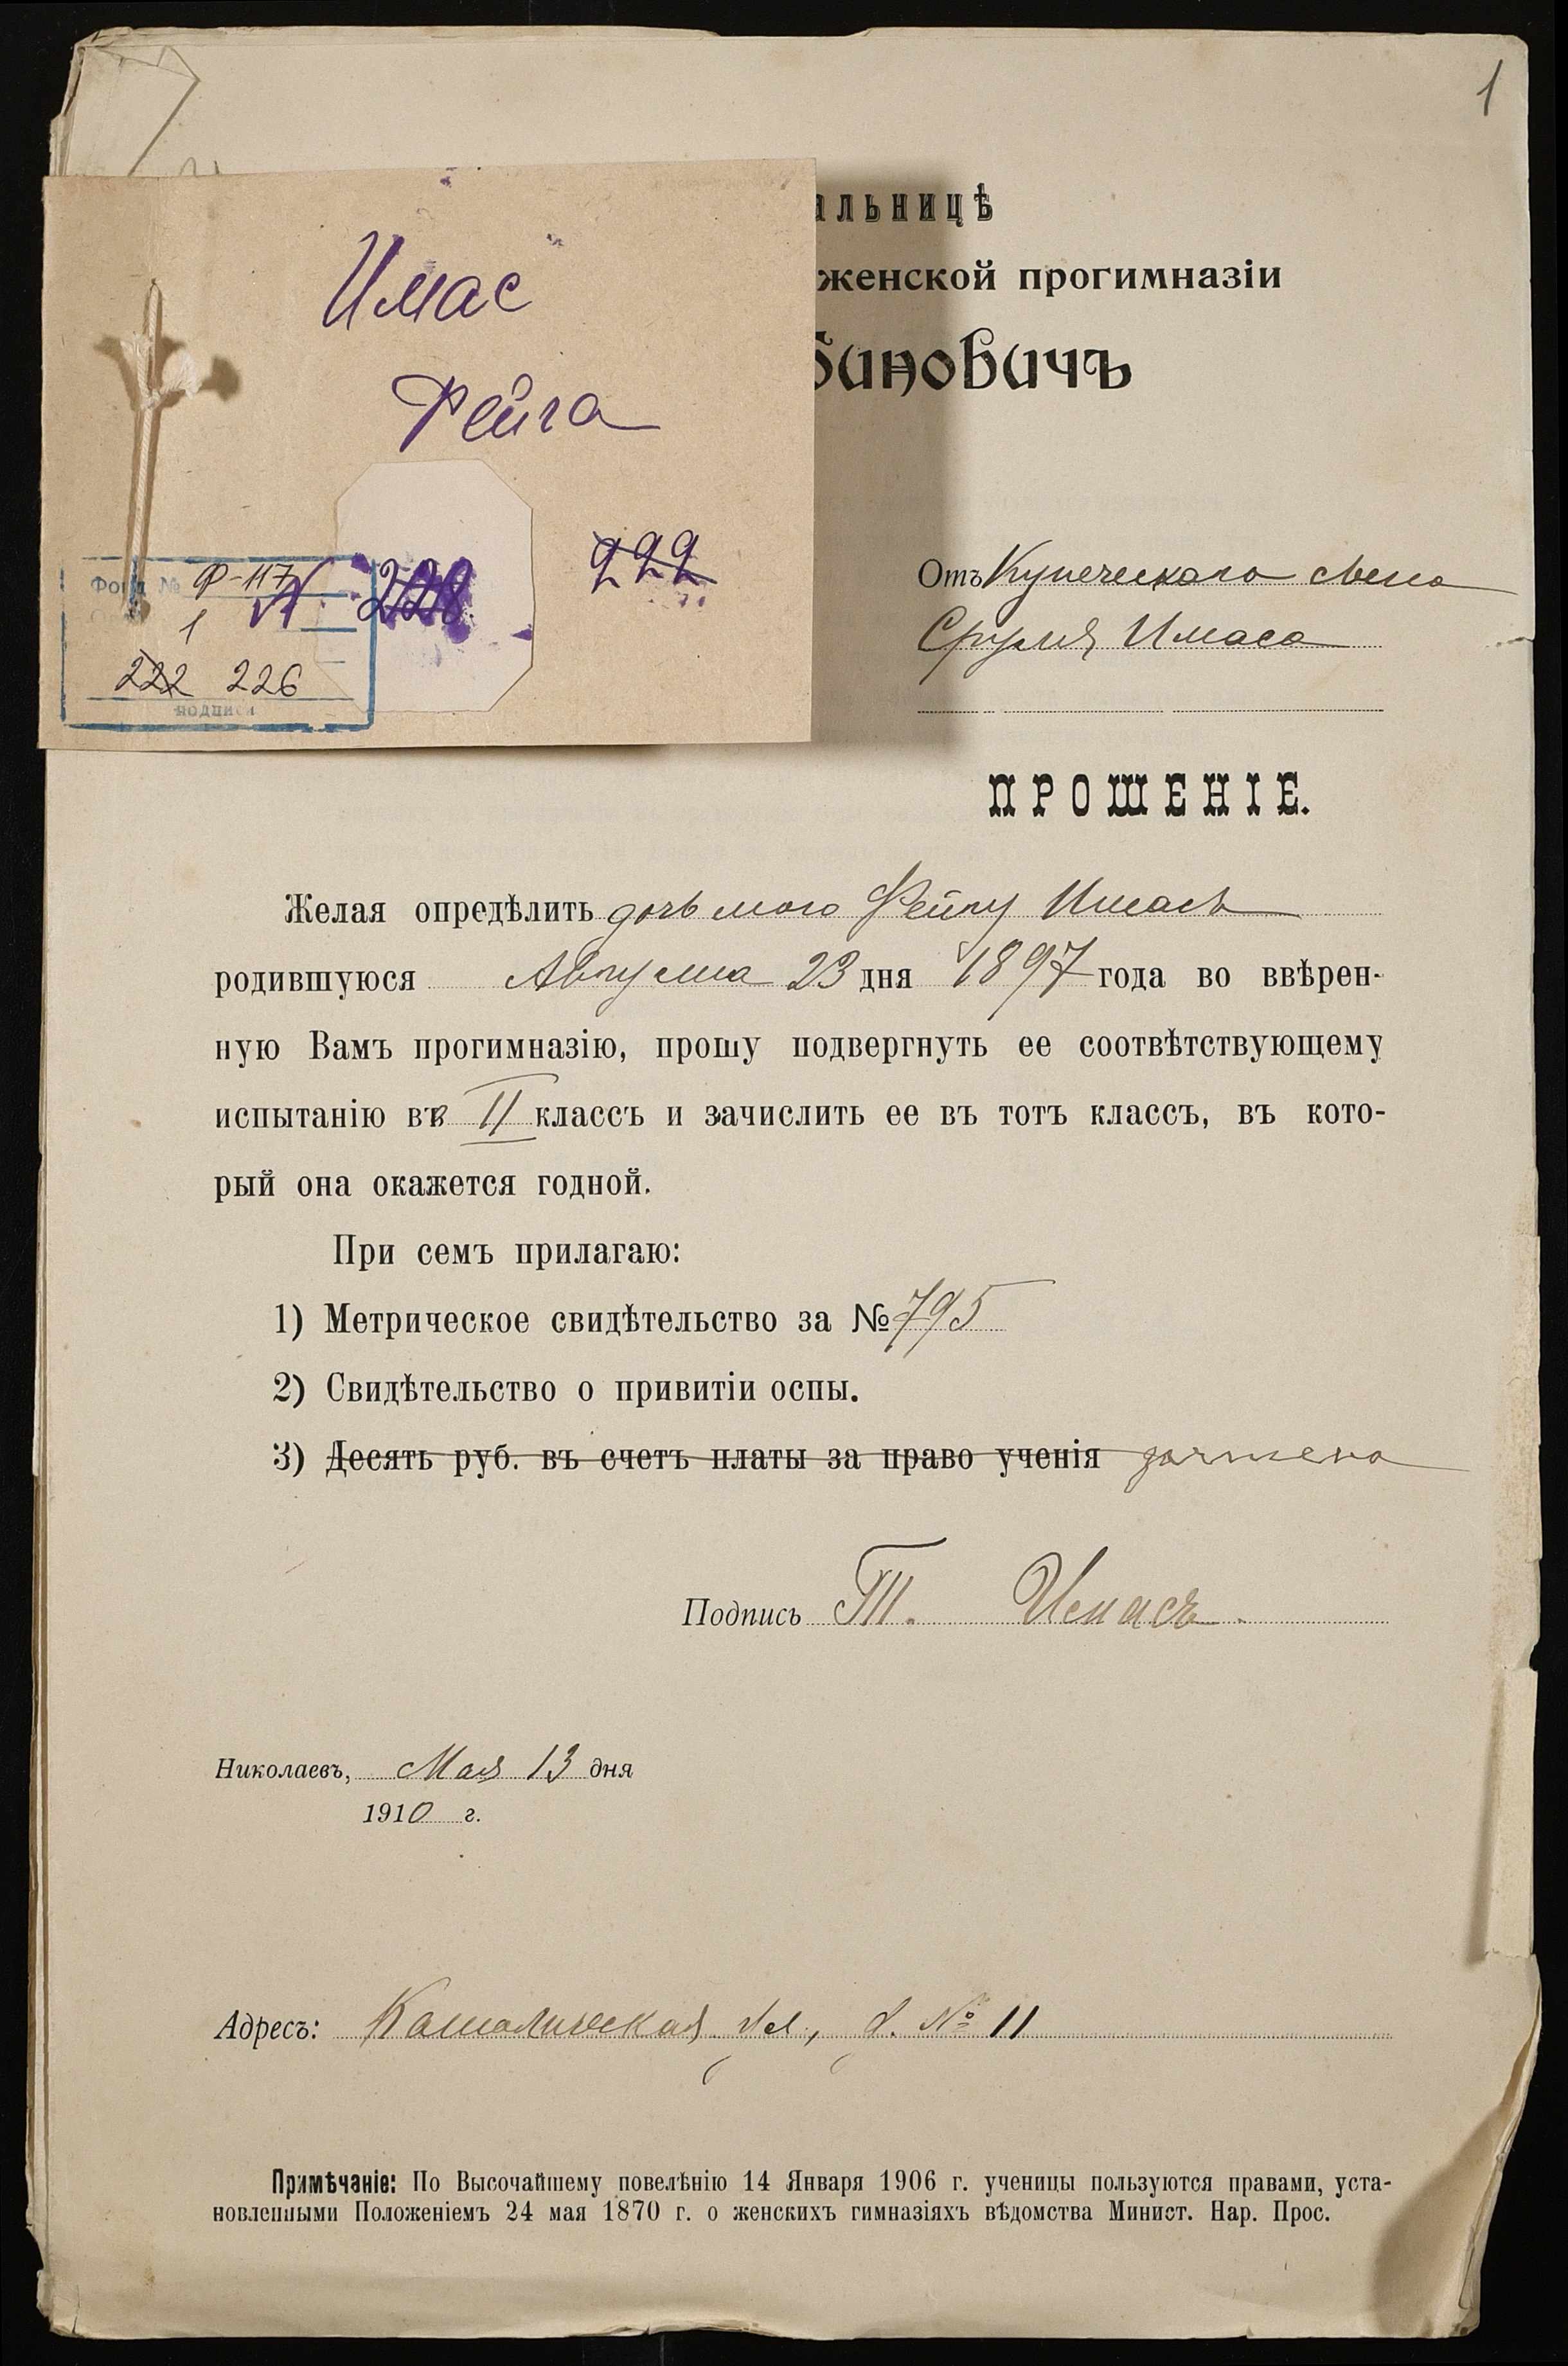 1
Имас
Фейга
222
228
Фонд № Ф-117
1
222 226
подписи
альницѣ
женской прогимназіи
биновичъ
Отъ Купеческаго сына
Сруля Имаса
ПРОШЕНІЕ.
Желая опредѣлить дочь мою Фейгу Имасъ
родившуюся Августа 23 дня 1897 года во ввѣрен-
ную Вамъ прогимназію, прошу подвергнуть ее соотвѣтствующему
испытанію въ II классъ и зачислить ее въ тотъ классъ, въ кото-
рый она окажется годной.
При семъ прилагаю:
1) Метрическое свидѣтельство за № 795
2) Свидѣтельство о привитіи оспы.
3) Десять руб. въ счетъ платы за право ученія зачтено
Подпись Имасъ
Николаевъ, Мая 13 дня
1910 г.
Адресъ: Католическая ул., д. № 11
Примѣчаніе: По Высочайшему повелѣнію 14 Января 1906 г. ученицы пользуются правами, уста-
новленными Положеніемъ 24 мая 1870 г. о женскихъ гимназіяхъ вѣдомства Минист. Нар. Прос.